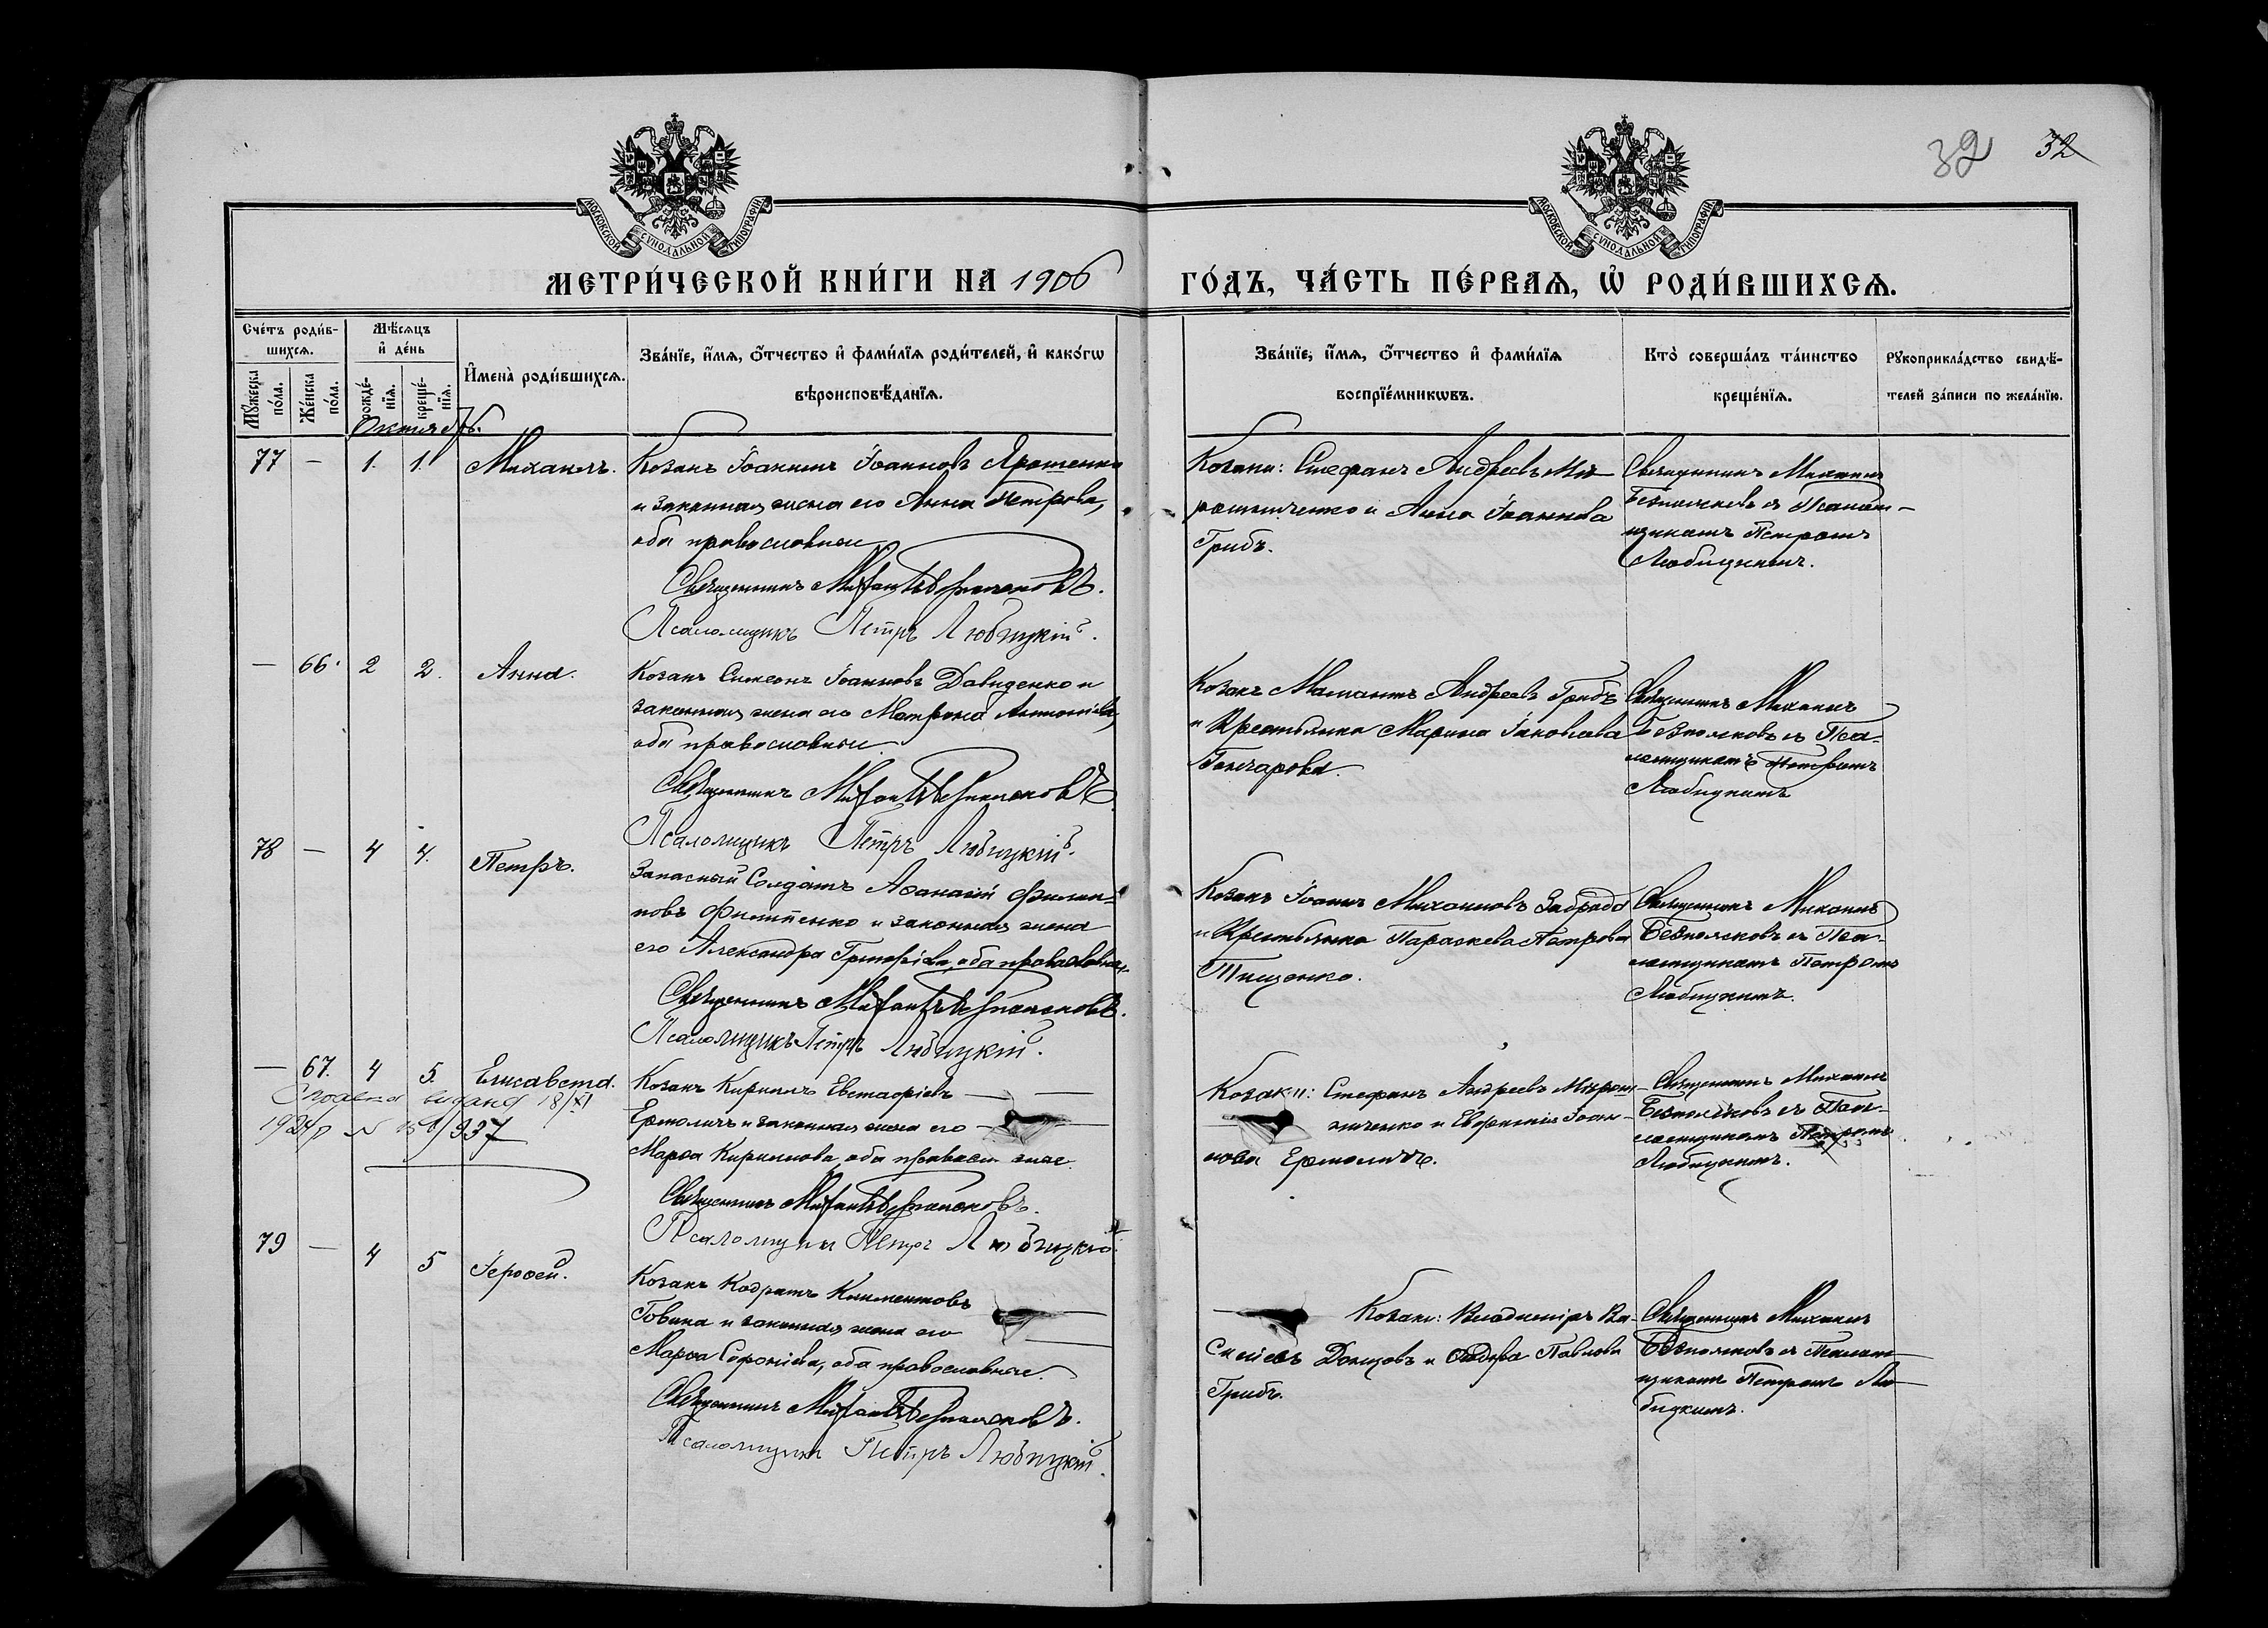 32 32
МОСКОВСКОЙ СѴНОДАЛЬНОЙ ТИПОГРАФІИ
МОСКОВСКОЙ СѴНОДАЛЬНОЙ ТИПОГРАФІИ
МЕТРИ́ЧЕСКОЙ КНИ́ГИ НА 1906 ГО́ДЪ, ЧА́СТЬ ПЕ́РВАѦ, Ѡ҆ РОДИ́ВШИХСѦ.
Сче́тъ роди́в-
шихсѧ.
Мꙋ́жеска по́ла.
Же́нска по́ла.
Мѣ́сѧцъ
и҆ де́нь
рожде́-
нїѧ.
креще́-
нїѧ.
И҆мена̀ роди́вшихсѧ.
Зва́нїе, и҆́мѧ, ѻ҆́тчество и҆ фами́лїѧ роди́телей, и҆ како́гѡ
вѣроисповѣ́данїѧ.
Зва́нїе, и҆́мѧ, ѻ҆́тчество и҆ фами́лїѧ
воспрїе́мникѡвъ.
Кто̀ соверша́лъ та́инство
креще́нїѧ.
Рꙋкоприкла́дство свидѣ́-
телей за́писи по жела́нїю.
Октябрь.
77 — 1. 1. Михаилъ.
Козакъ Іоаннъ Іоанновъ Ярошенко
и законная жена его Анна Петрова,
оба православные
Священникъ Михаилъ Безполековъ.
Псаломщикъ Петръ Любицкій.
Козаки: Стефанъ Андреевъ Ми-
рошниченко и Анна Іоаннова
Грибъ.
Священникъ Михаилъ
Безполековъ съ Псалом-
щикомъ Петромъ
Любицкимъ.
— 66. 2 2. Анна.
Козакъ Симеонъ Іоанновъ Давиденко и
законная жена его Матрона Антоніева,
оба православные
Священникъ Михаилъ Безполековъ
Псаломщикъ Петръ Любицкій.
Козакъ Андреевъ Грибъ
и Крестьянка Марина Іаковлева
Гончарова.
Священникъ Михаилъ
Безполековъ съ Пса-
ломщикомъ Петромъ
Любицкимъ
78 — 4 4. Петръ.
Запасный Солдатъ Аѳанасій Филип-
повъ Филипенко и законная жена
его Александра Григоріева, оба православные.
Священникъ Михаилъ Безполековъ.
Псаломщикъ Петръ Любицкій.
Козакъ Іоаннъ Михаиловъ Забрада
и Крестьянка Параскева Петрова
Тищенко.
Священникъ Михаилъ
Безполековъ съ Пса-
ломщикомъ Петромъ
Любицкимъ.
— 67. 4 5. Елисавета.
видана 18/XI
1924р N /937
Козакъ Кириллъ Евстафіевъ
Ермоличъ и законная жена его
Марѳа Кириллова, оба православные.
Священникъ Михаилъ Безполековъ.
Псаломщикъ Петръ Любицкій.
Козаки: Стефанъ Андреевъ Мирош-
ниченко и Евфимія Іоан-
нова Ермоличъ.
Священникъ Михаилъ
Безполековъ съ Пса-
ломщикомъ Петромъ
Любицкимъ.
79 — 4 5 Іероѳей.
Козакъ Кодратъ Климентовъ
Говина и законная жена его
Марѳа Софоніева, оба православные.
Священникъ Михаилъ Безполековъ.
Псаломщикъ Петръ Любицкій.
Козаки: Владиміръ Ва-
силіевъ Донцовъ и Павлова
Грибъ.
Священникъ Михаилъ
Безполековъ съ Псалом-
щикомъ Петромъ Лю-
бицкимъ.